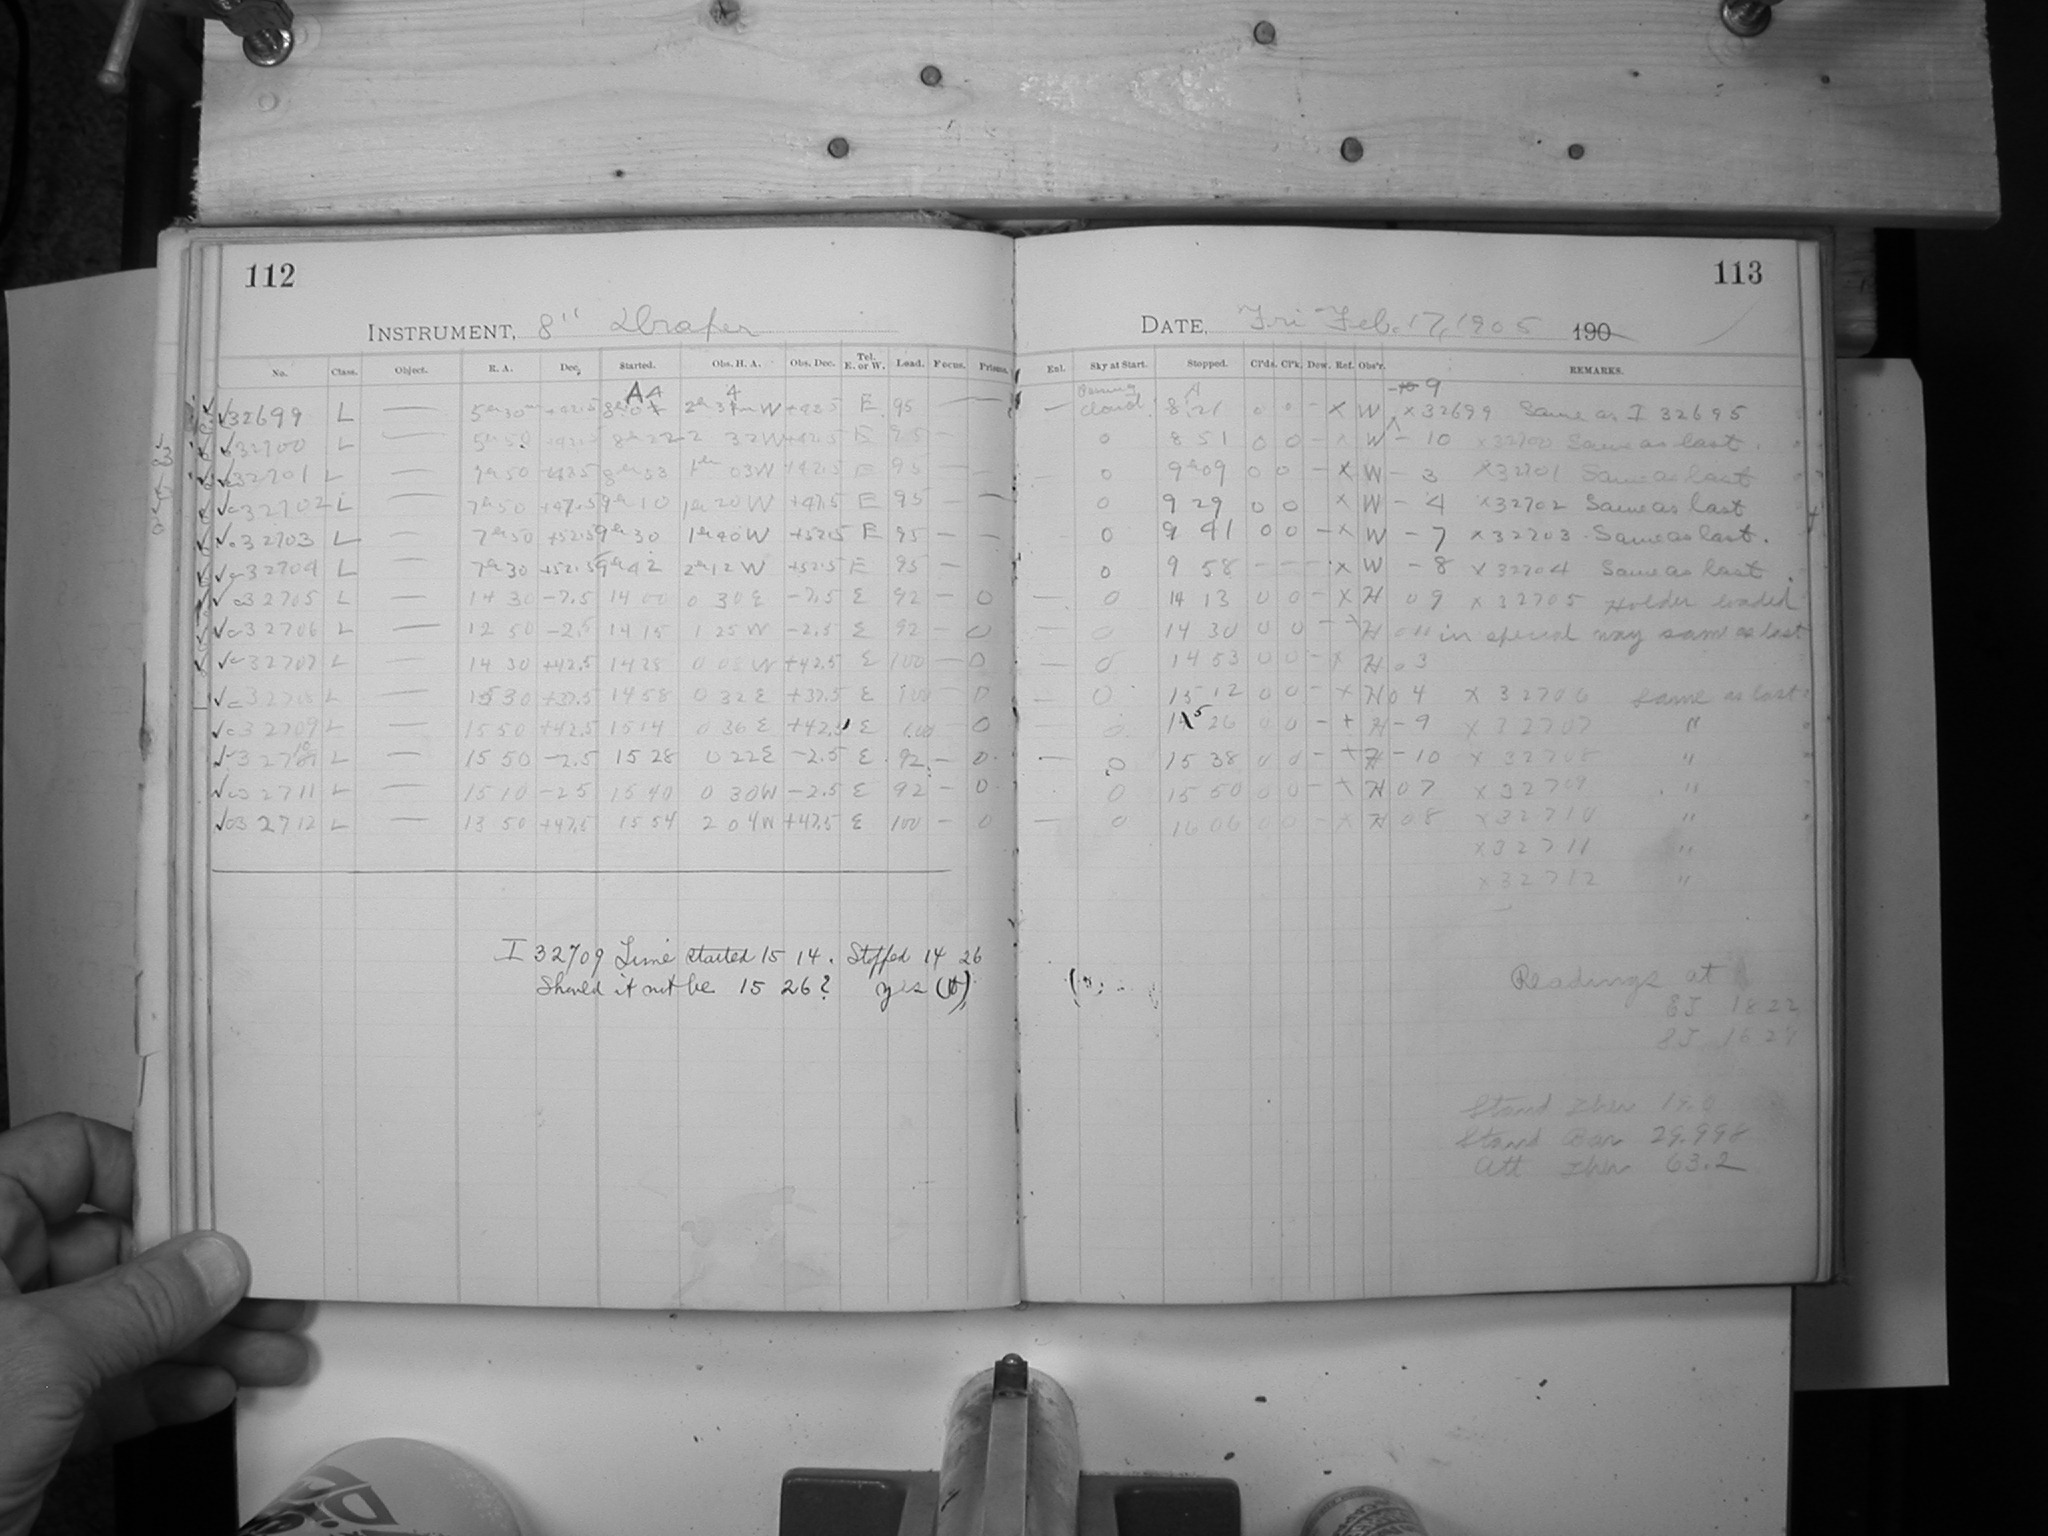 112
INSTRUMENT, 8" Draper
No. Class. Object. R. A. Dec. Started. Obs. H. A. Obs. Dec. Tel. E. or W. Load. Focus. Prisms.
√32699 L — 5h 30m +42.5 +42.5 E 95 —
√32700 L — 5h 50 8h 22 2 32W +42.5 E 95 —
√32701 L — 7h 50 8h 53 1h 03W +42.5 E 95 — —
√32702 L — 7h 50 +47.5 9h 10 1h 20W +47.5 E 95 — —
√32703 L — 7h 50 +52.5 9h 30 1h 40W +52.5 E 95 — —
√32704 L — 7h 30 +52.5 9h 42 2h 12W +52.5 E 95 —
√32705 L — 14 30 -7.5 14 00 0 30E -7.5 E 92 — 0
√32706 L — 12 50 -2.5 14 15 1 25W -2.5 E 92 — 0
√32707 L — 14 30 +42.5 0 08W +42.5 E 100 — 0
√32708 L — 15 30 +37.5 14 58 0 32E +37.5 E 100 0
√32709 L — 15 50 +42.5 15 14 0 36E +42.5 E 100 0
√32710 L — 15 50 -2.5 15 28 0 22E -2.5 E 92 — 0
√32711 L — 15 10 -2.5 15 40 0 30W -2.5 E 92 — 0
√32712 L — 13 50 +47.5 15 54 2 04W +47.5 E 100 — 0
I 32709 Time started 15 14. Stopped 14 26
Should it not be 15 26? yes
113
DATE, Fri Feb. 17, 1905 190
Enl. Sky at Start. Stopped. Cl'ds. Cl'k. Dew. Ref. Obs'r. REMARKS.
— Passing cloud. 8 21 0 0 - x W - 9 x 32699 Same as I 32695
0 8 51 0 0 - x W - 10 x 32700 Same as last.
0 9h 09 0 0 - x W - 3 x 32701 Same as last
0 9 29 0 0 x W - 4 x 32702 Same as last
0 9 41 0 0 - x W - 7 x 32703 Same as last.
0 9 58 - - - x W - 8 x 32704 Same as last.
— 0 14 13 0 0 - x H 0 9 x 32705 Holder loaded
— 0 14 30 0 0 - H in special way same as last
— 0 14 53 0 0 - x H 0 3
— 0 15 12 0 0 - x H 0 4 x 32706 Same as last
0 15 26 0 0 - + H - 9 x 32707 "
— 0 15 38 0 0 - + H - 10 x 32708 "
0 15 50 0 0 - + H 0 7 x 32709 "
— 0 16 06 0 0 - x H 0 8 x 32710 "
x 32711 "
x 32712 "
Readings at
18 22
Stand Bar 29.998
Att Ther 63.2